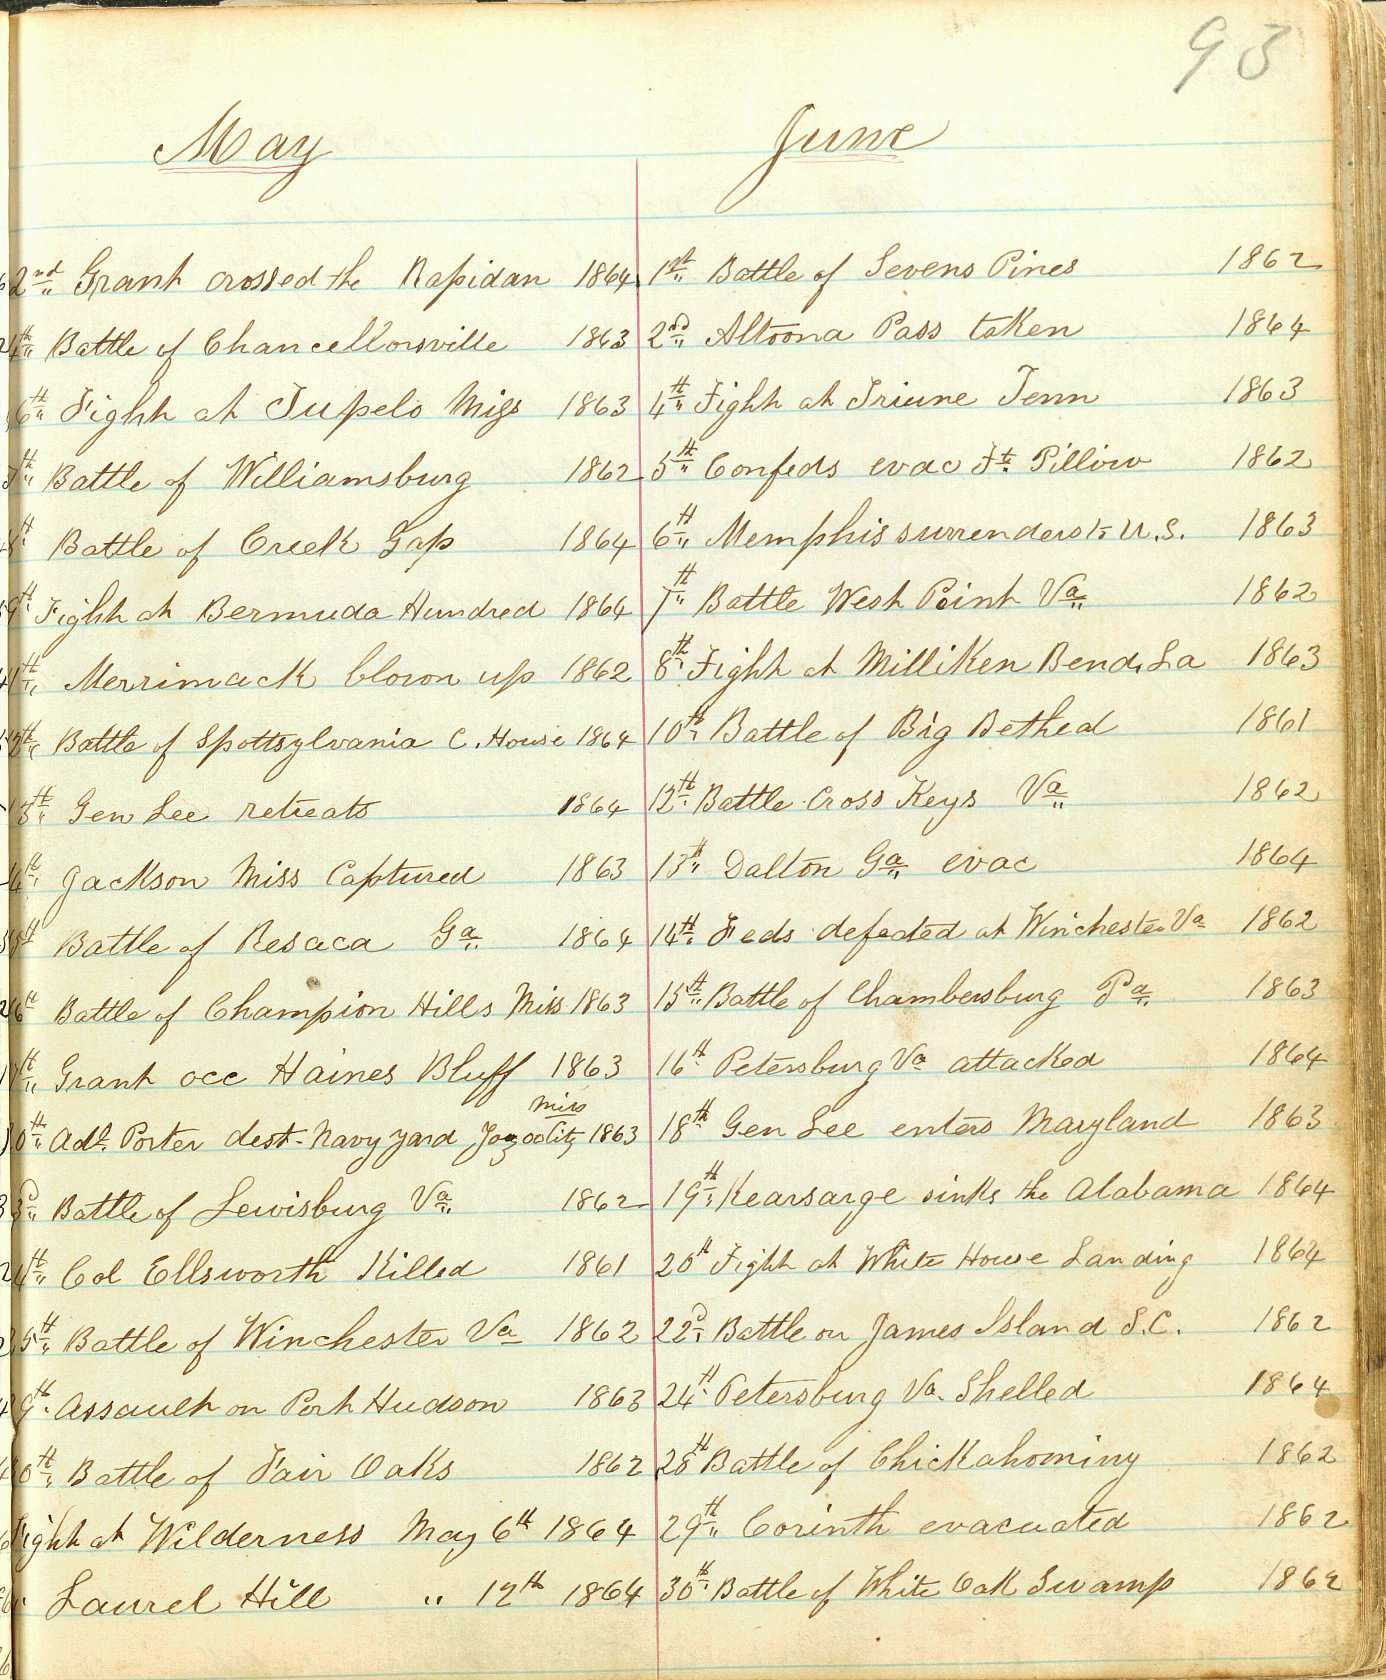 93
May
2nd Grant crossed the Rapidan 1864
4th Battle of Chancellorsville 1863
6th Fight at Tupelo Miss 1863
Battle of Williamsburg 1862
Battle of Creek Gap 1864
9th Fight at Bermuda Hundred 1864
Merrimack blown up 1862
Battle of Spottsylvania C. House 1864
13th Gen Lee retreats 1864
14th Jackson Miss Captured 1863
Battle of Resaca Ga 1864
16th Battle of Champion Hills Miss 1863
Grant occ Haines Bluff 1863
Adl. Porter dest. Navy yard Yazoo City Miss 1863
Battle of Lewisburg Va 1862
Col Ellsworth Killed 1861
25th Battle of Winchester Va 1862
Assault on Port Hudson 1863
Battle of Fair Oaks 1862
Fight at Wilderness May 6th 1864
Laurel Hill " 12th 1864
June
1st Battle of Sevens Pines 1862
2nd Altoona Pass taken 1864
4th Fight at Triune Tenn 1863
5th Confeds evac Ft. Pillow 1862
6th Memphis surrenders to U.S. 1863
7th Battle West Point Va 1862
8th Fight at Milliken Bend, La 1863
10th Battle of Big Bethed 1861
12th Battle Cross Keys Va 1862
13th Dalton Ga evac 1864
14th Feds defected at Winchester Va 1862
15th Battle of Chambersburg Pa 1863
16th Petersburg Va attacked 1864
18th Gen Lee enters Maryland 1863
19th Kearsarge sinks the Alabama 1864
20th Fight at White House Landing 1864
22d Battle on James Island S.C. 1862
24th Petersburg Va. Shelled 1864
28th Battle of Chickahominy 1862
29th Corinth evacuated 1862
30th Battle of White Oak Swamp 1862